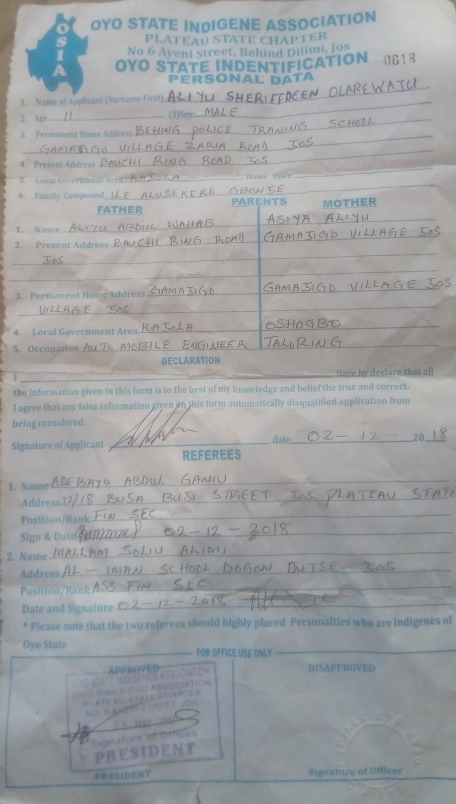 OSIA
OYO STATE INDIGENE ASSOCIATION
PLATEAU STATE CHAPTER
No 6 Ayeni Street, Behind Dilimi, Jos
OYO STATE INDENTIFICATION 0618
PERSONAL DATA
1. Name of Applicant (Surname First) ALIYU SHERIFFDEEN OLAREWAJU
2. Age 11 (3)Sex MALE
3. Permanent Home Address BEHING POLICE TRANING SCHOOL
GAMAJIGO VILLAGE ZARIA ROAD JOS
4. Present Address BAUCHI RING ROAD JOS
5. Local Government Area KAJOLA Home Town
6. Family Compound ILE ALUSEKERE GBONJE
PARENTS
FATHER MOTHER
1. Name ALIYU ABDUL WAHAB ASIYA ALIYU
2. Present Address BAUCHI RING ROAD GAMAJIGO VILLAGE JOS
JOS
3. Permanent Home Address GAMAJIGO GAMAJIGO VILLAGE JOS
VILLAGE JOS
4. Local Government Area KAJOLA OSHOGBO
5. Occupation AUTO MOBILE ENGINEER TALORING
DECLARATION
I Here by declare that all
the information given in this form is to the best of my knowledge and belief the true and correct.
I agree that any false information given on this form automatically disqualified application from
being considered.
Signature of Applicant date 02-12-2018
REFEREES
1. Name ADEBAYO ABDUL GANIU
Address 12/18 BUSA BUJI STREET JOS PLATEAU STATE
Position/Rank FIN SEC
Sign & Date 02-12-2018
2. Name MALLAM SOLIU ALIMI
Address AL-IMAN SCHOOL DOGON DUTSE JOS
Position/Rank ASS FIN SEC
Date and Signature 02-12-2018
* Please note that the two referees should highly placed Personalties who are indigenes of
Oyo State
FOR OFFICE USE ONLY
APPROVED DISAPPROVED
OYO STATE INDIGENES ASSOCIATION
PLATEAU STATE CHAPTER
Signature of Officer
PRESIDENT
PRESIDENT Signature of Officer